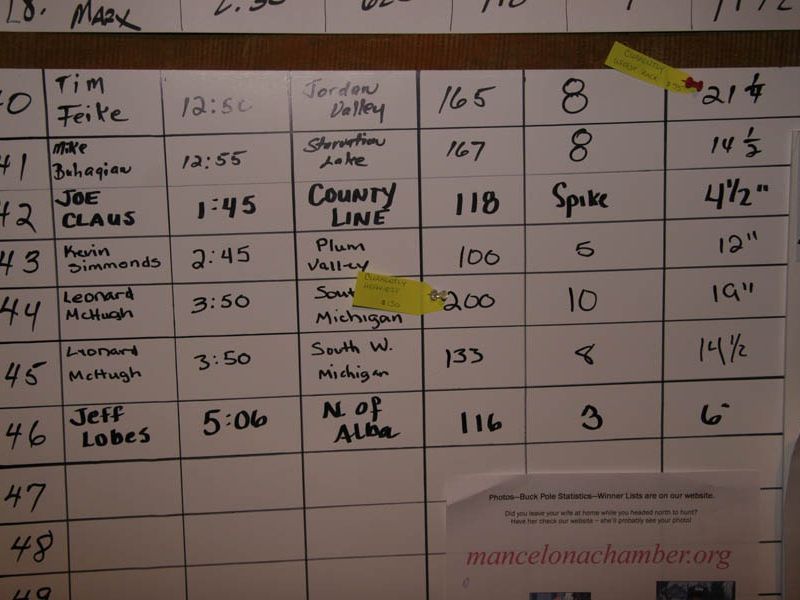 28. MARX
40 Tim Feike 12:50 Jordan Valley 165 8 21 1/4
CURRENTLY
41 Mike Buhagiar 12:55 Starvation Lake 167 8 14 1/2
42 JOE CLAUS 1:45 COUNTY LINE 118 Spike 4 1/2"
43 Kevin Simmonds 2:45 Plum Valley 100 5 12"
44 Leonard McHugh 3:50 Michigan 200 10 19"
CURRENTLY
HEAVIEST
$150
45 Leonard McHugh 3:50 South W. Michigan 133 8 14 1/2
46 Jeff Lobes 5:06 N. of Alba 116 3 6"
47
48
49
Photos--Buck Pole Statistics--Winner Lists are on our website.
Did you leave your wife at home while you headed north to hunt?
Have her check our website -- she'll probably see your photo!
mancelonachamber.org